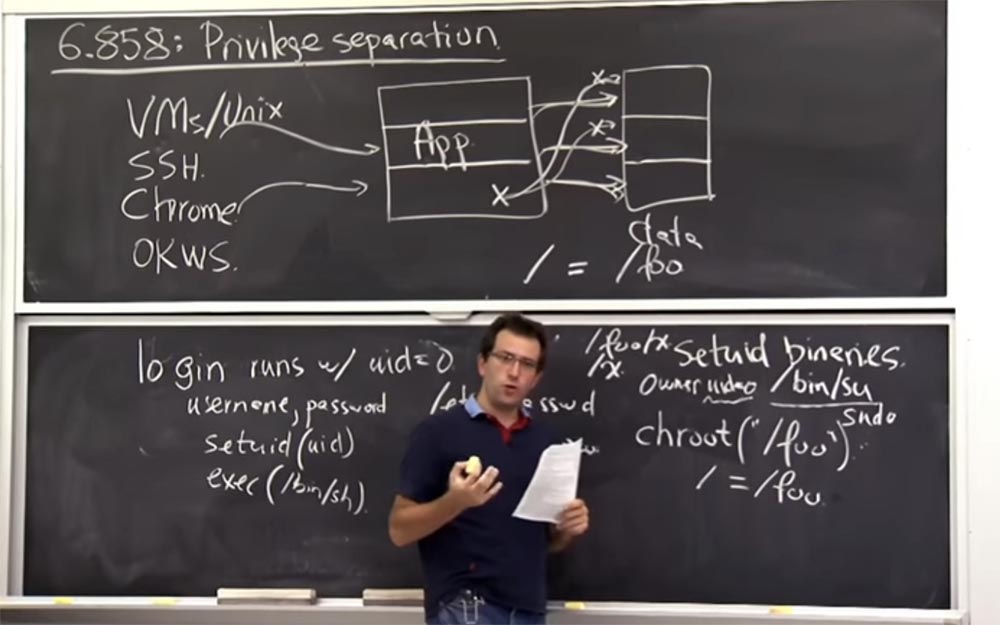 6.858: Privilege separation
VMs/Unix
SSH.
Chrome
OKWS.
App.
data
/ = /foo
login runs w/ uid=0
username, password
setuid(uid)
exec(/bin/sh).
/foo/x
/x.
setuid binaries.
owner uid=0 /bin/su
sudo
chroot("/foo")
/ = /foo.